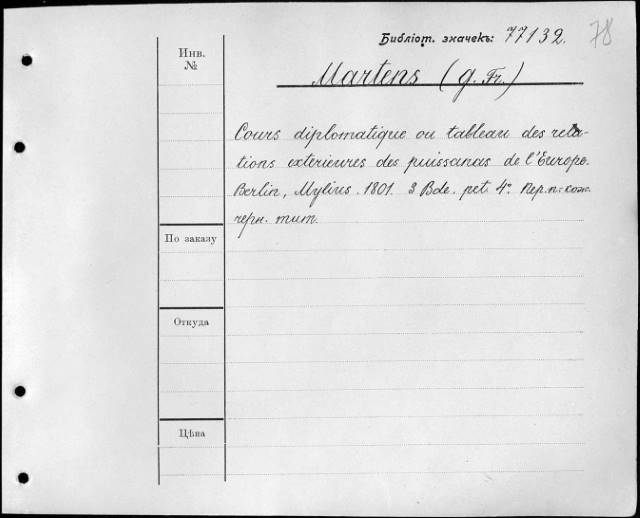 Библіот. значекъ: 77132. 78
Инв.
№
Martens (G. Fr.)
Cours diplomatique ou tableau des rela-
tions exterieures des puissances de l'Europe.
Berlin, Mylius. 1801. 3 Bde. pet 4º. Пер. п. кож.
черн. тит.
По заказу
Откуда
Цѣна